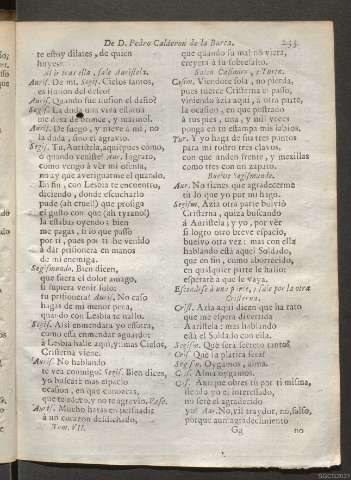 De D. Pedro Calderon de la Barca. 233
te estoy dilates, de quien
huyes?
Al ir tras ella, sale Auristela.
Auris. De mi. Segis. Cielos santos,
es ilusion del deseo?
Auris. Quando fue ilusion el daño?
Segis. La duda una viva estatua
me dexa de bronce, y marmol.
Auris. De fuego, y nieve à mi, no
la duda, sino el agravio.
Segis. Tu, Auristela, aqui? pues còmo,
ò quando veniste? Aur. Ingrato,
como vengo à ver mi ofensa,
no ay que averiguarme el quando.
En fin, con Lesbia te encuentro,
diciendo, donde escucharlo
pude (ah cruel!) que prosiga
el gusto con que (ah tyrano!)
la estabas oyendo: bien
me pagas, lo que passo
por ti, pues por ti he venido
à dar prisionera en manos
de mi enemiga.
Segismundo. Bien dices,
que fuera el dolor amago,
si supiera venir solo:
tu prisionera? Auris. No caso
hagas de mi menor pena,
quando con Lesbia te hallo.
Segis. Assi enmendara yo essotra,
como essa enmendar aguardo:
à Lesbia hallè aqui, y mas Cielos,
Cristerna viene.
Auris. No hablando
te vea conmigo: Segis. Bien dices,
yo buscarè mas espacio
ocasion, en que conozcas,
que te adoro, y no te agravio. Vase.
Auris. Mucho haràs en persuadir
à un corazon desdichado,
Tom. VII.
que quando su mal no viera,
creyera à su sobresalto.
Salen Casimiro, y Turin.
Casim. Viendote sola, no pierda,
pues tuerce Cristerna el passo,
viniendo àzia aqui, à otra parte,
la ocasion, en que postrado
à tus pies, una, y mil veces
ponga en tu estampa mis labios.
Tur. Y yo haga de sus tres puntos
para mi rostro tres clavos,
con que anden frente, y mexillas
como tres con un zapato.
Buelve Segismundo.
Aur. No tienes que agradecerme
tù lo que yo por mi hago.
Segism. Azia otra parte bolviò
Cristerna, quizà buscando
à Auristela; y yo, por vèr
si logro otro breve espacio,
buelvo otra vez: mas con ella
hablando està aquel Soldado,
que en fin, como aborrecido,
en qualquier parte le hallo:
esperarè à que se vaya.
Escondese à una parte, y sale por la otra
Cristerna.
Crist. Azia aqui dicen que ha rato
que me espera divertida
Auristela: mas hablando
està el Soldado con ella.
Segism. Què serà secreto tanto?
Cris. Què la platica serà?
Segism. Oygamos, alma.
Crist. Alma oygamos.
Cas. Aunque obres tù por ti misma,
siendo yo el interessado,
no serè el agradecido
yo? Aur. No, vil traydor, no, falso,
porque aun agradecimiento
Gg no